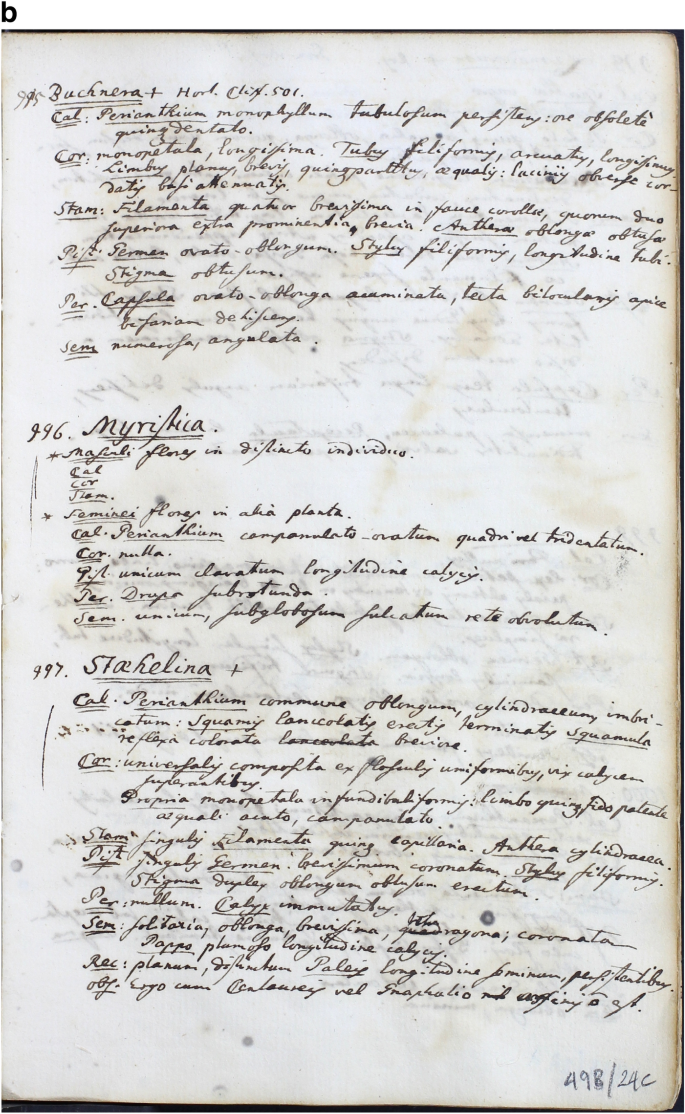 b
995 Buchnera + Hort. Cliff. 501.
Cal: Perianthium monophyllum tubulosum persistens: ore obsolete
quinqdentato.
Cor: monopetala, longissima. Tubus filiformis, arcuatus, longissimus.
Limbus planus, brevis, quinqpartitus, æqualis: laciniis obverse cor-
datis basi attenuatis.
Stam: Filamenta quatuor brevissima in fauce corollæ, quorum duo
superiora extra prominentia, brevia. Antheræ oblongæ obtusæ
Pist. Germen ovato-oblongum. Stylus filiformis, longitudine tubi.
Stigma obtusum.
Per. Capsula ovato-oblonga acuminata, tecta bilocularis apice
bifariam dehiscens.
Sem numerosa, angulata.
996. Myristica.
* Masculi flores in distincto individuo.
Cal
Cor
Stam.
* Feminei flores in alia planta.
Cal. Perianthium campanulato-ovatum quadri vel tridentatum.
Cor. nulla.
Pist. unicum clavatum longitudine calycis.
Per. Drupa subrotunda.
Sem. unicum, subglobosum sulcatum rete obvolutum.
997. Stæhelina +
Cal. Perianthium commune oblongum, cylindraceum, imbri-
catum: Squamis lanceolatis erectis terminatis squamula
reflexa colorata lanceolata breviore.
Cor: universalis composita ex flosculis uniformibus, vix calycem
superantibus.
Propria monopetala infundibuliformis: limbo quinqfido patente
æquali acuto, campanulato
Stam singulis Filamenta quinq capillaria. Anthera cylindracea.
Pist singulis Germen brevissimum coronatum. Stylus filiformis.
Stigma duplex oblongum obtusum erectum.
Per: nullum. Calyx immutatus.
Sem: solitaria, oblonga, brevissima, coronata
Pappo plumoso longitudine calycis.
Rec: planum, distinctum Paleis longitudine seminum, persistentibus.
obs. Ergo cum Centaureis vel Gnaphalio est.
498/24c